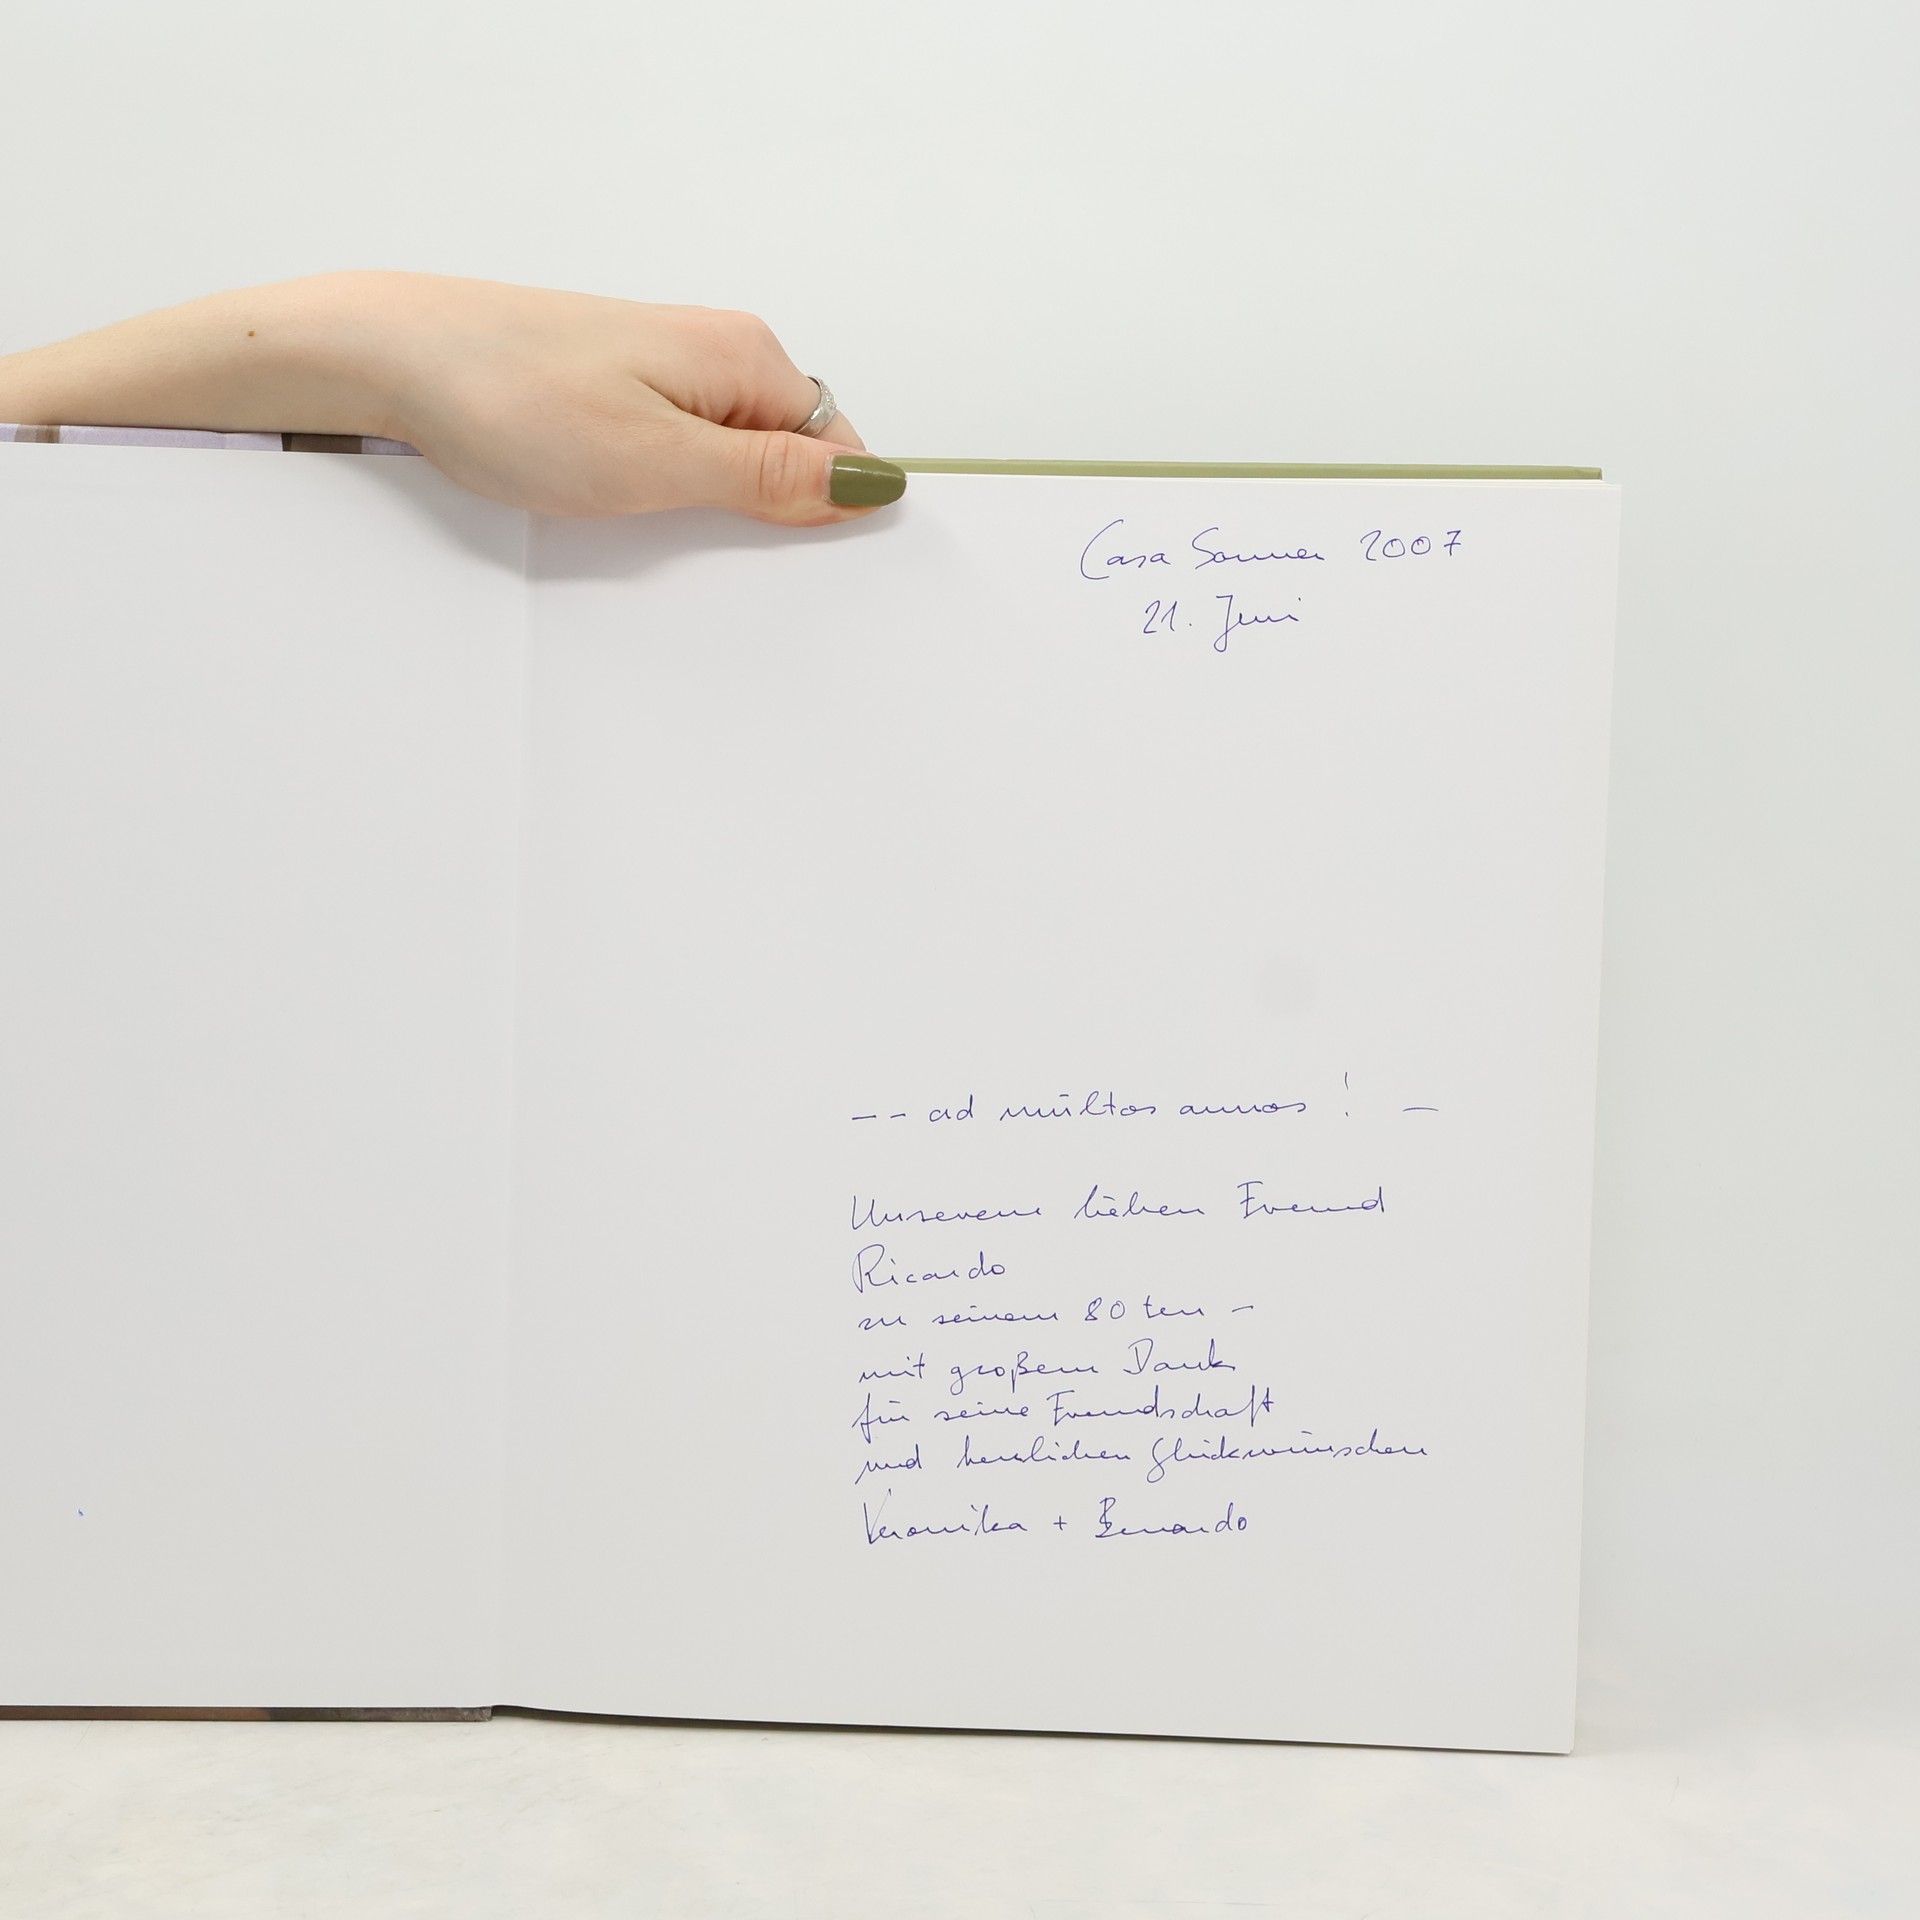 Casa Sommer 2007
21. Juni
-- ad multos annos! —
Unserem lieben Freund
Ricardo
zu seinem 80ten -
mit großem Dank
für seine Freundschaft
und herzlichen Glückwünschen
Veronika + Bernardo